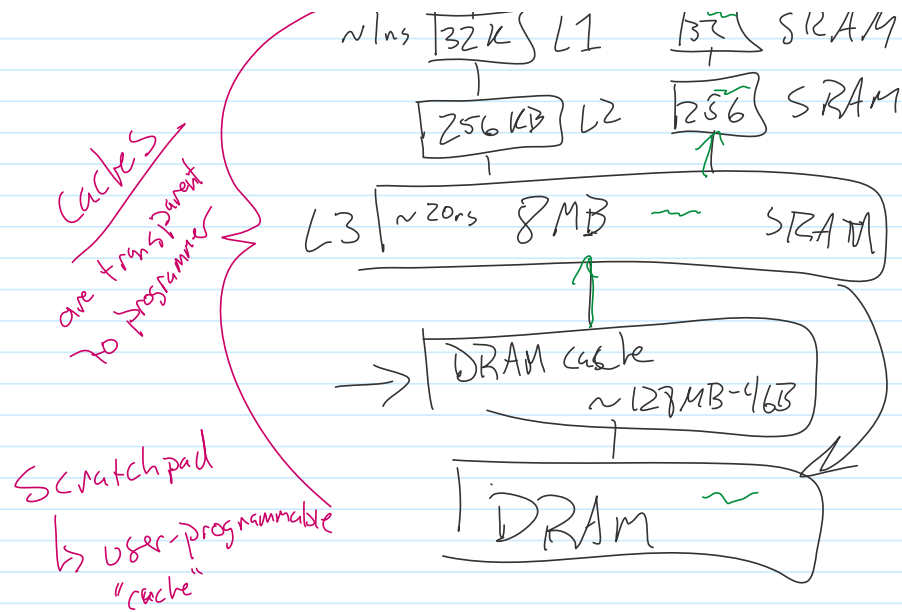 ~1ns 32K L1 32 SRAM
256KB L2 256 SRAM
L3 ~20ns 8MB SRAM
DRAM cache
~128MB-4GB
DRAM
caches
are transparent
to programmer
Scratchpad
↳ user-programmable
"cache"